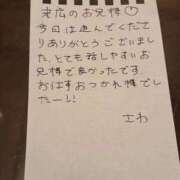 末広のお兄様♡
今日は遊んでくださ
りありがとうございまし
た、とても話しやすいお
兄様で良かったです
おはすおつかれ様でし
たー!!
さわ